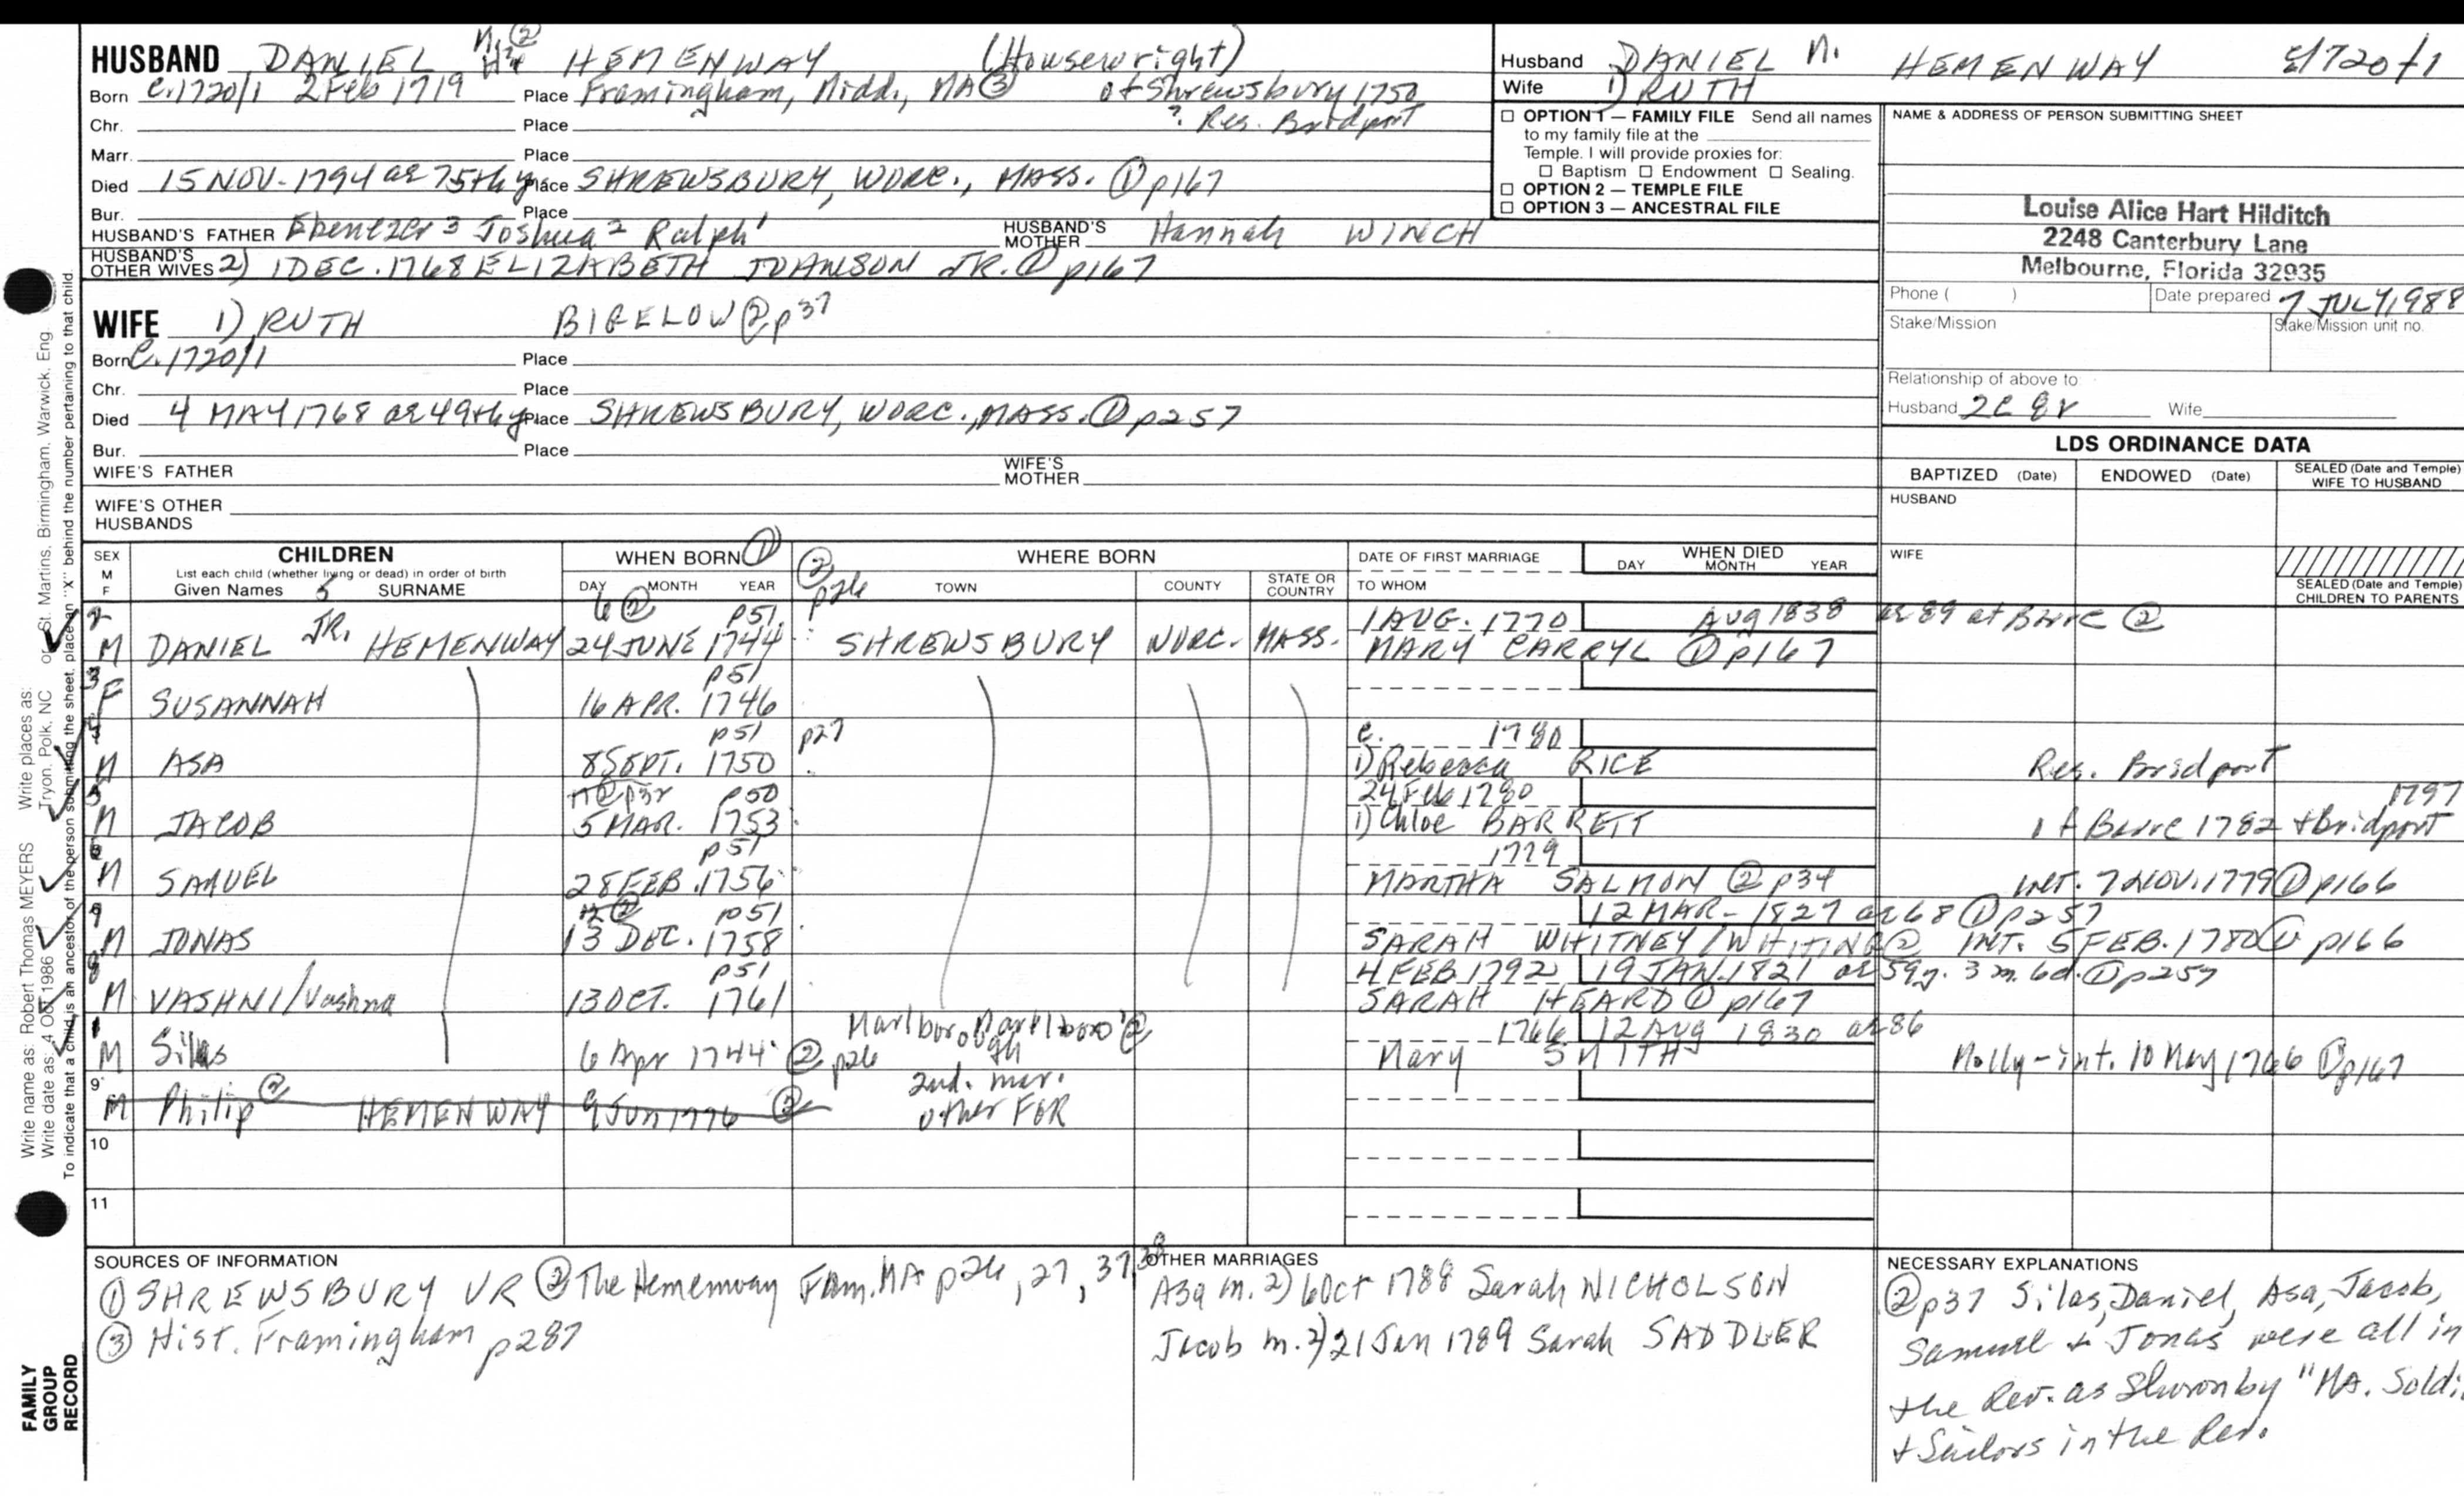 HUSBAND DANIEL N. ② HEMENWAY (Housewright)
Born c.1720/1 2 Feb 1719 Place Framingham, Midd., MA ③ of Shrewsbury 1750
Chr. Place ? Res. Bridport
Marr. Place
Died 15 NOV. 1794 ae 75th y Place SHREWSBURY, WORC., MASS. ① p167
Bur. Place
HUSBAND'S FATHER Ebenezer 3 Joshua 2 Ralph 1 HUSBAND'S MOTHER Hannah WINCH
HUSBAND'S OTHER WIVES 2) 1 DEC. 1768 ELIZABETH JOHNSON JR. ① p167
WIFE 1) RUTH BIGELOW ② p37
Born c.1720/1 Place
Chr. Place
Died 4 MAY 1768 ae 49th y Place SHREWSBURY, WORC., MASS. ① p257
Bur. Place
WIFE'S FATHER WIFE'S MOTHER
WIFE'S OTHER HUSBANDS
Husband DANIEL N. HEMENWAY c/1720/1
Wife 1) RUTH
OPTION 1 — FAMILY FILE Send all names
to my family file at the
Temple. I will provide proxies for:
Baptism Endowment Sealing.
OPTION 2 — TEMPLE FILE
OPTION 3 — ANCESTRAL FILE
NAME & ADDRESS OF PERSON SUBMITTING SHEET
Louise Alice Hart Hilditch
2248 Canterbury Lane
Melbourne, Florida 32935
Phone ( ) Date prepared 7 JULY 1988
Stake/Mission Stake/Mission unit no.
Relationship of above to:
Husband 2C 8r Wife
LDS ORDINANCE DATA
BAPTIZED (Date) ENDOWED (Date) SEALED (Date and Temple) WIFE TO HUSBAND
HUSBAND
WIFE
SEALED (Date and Temple) CHILDREN TO PARENTS
SEX M F CHILDREN WHEN BORN ① ② p26 WHERE BORN DATE OF FIRST MARRIAGE WHEN DIED
List each child (whether living or dead) in order of birth
Given Names SURNAME DAY MONTH YEAR TOWN COUNTY STATE OR COUNTRY TO WHOM DAY MONTH YEAR
2 6 ② p51 1 AUG. 1770 Aug 1838 ae 89 at Barre ②
M DANIEL JR. HEMENWAY 24 JUNE 1744 SHREWSBURY WORC. MASS. MARY CARRYL ① p167
3 p51
F SUSANNAH 16 APR. 1746
p51 p27 c. 1780
M ASA 8 SEPT. 1750 1) Rebecca RICE Res. Bridport
p50 24 Feb 1780 1797
M JACOB 5 MAR. 1753 1) Chloe BARRETT of Barre 1782 + Bridport
p51 1779
M SAMUEL 28 FEB. 1756 MARTHA SALMON ② p34 INT. 7 NOV. 1779 ① p166
p51 12 MAR. 1827 ae 68 ① p257
M JONAS 13 DEC. 1758 SARAH WHITNEY/WHITING ② INT. 5 FEB. 1780 ① p166
p51 4 FEB 1792 19 JAN. 1821 ae 59y. 3m. 6d. ① p257
M VASHNI/Vashna 13 OCT. 1761 SARAH HEARD ① p167
1 Marlborough Marlboro' ② 1766 12 Aug 1830 ae 86
M Silas 6 Apr 1744 ② p26 Mary SMITH Molly - int. 10 May 1766 ① p167
9 2nd. mar.
M Philip ② HEMENWAY 9 Jun 1776 ② other FGR
10
11
SOURCES OF INFORMATION
① SHREWSBURY VR ② The Hemenway Fam. MA p26, 27, 37, 38
③ Hist. Framingham p287
OTHER MARRIAGES
Asa m. 2) 6 Oct 1788 Sarah NICHOLSON
Jacob m. 2) 21 Jan 1789 Sarah SADDLER
NECESSARY EXPLANATIONS
② p37 Silas, Daniel, Asa, Jacob,
Samuel & Jonas were all in
the Rev. as shown by "MA. Soldi
+ Sailors in the Rev.
Write name as: Robert Thomas MEYERS Write places as: Tryon, Polk, NC
Write date as: 4 OCT 1986 or St. Martins, Birmingham, Warwick, Eng
To indicate that a child is an ancestor of the person submitting the sheet, place an "X" behind the number pertaining to that child
FAMILY
GROUP
RECORD